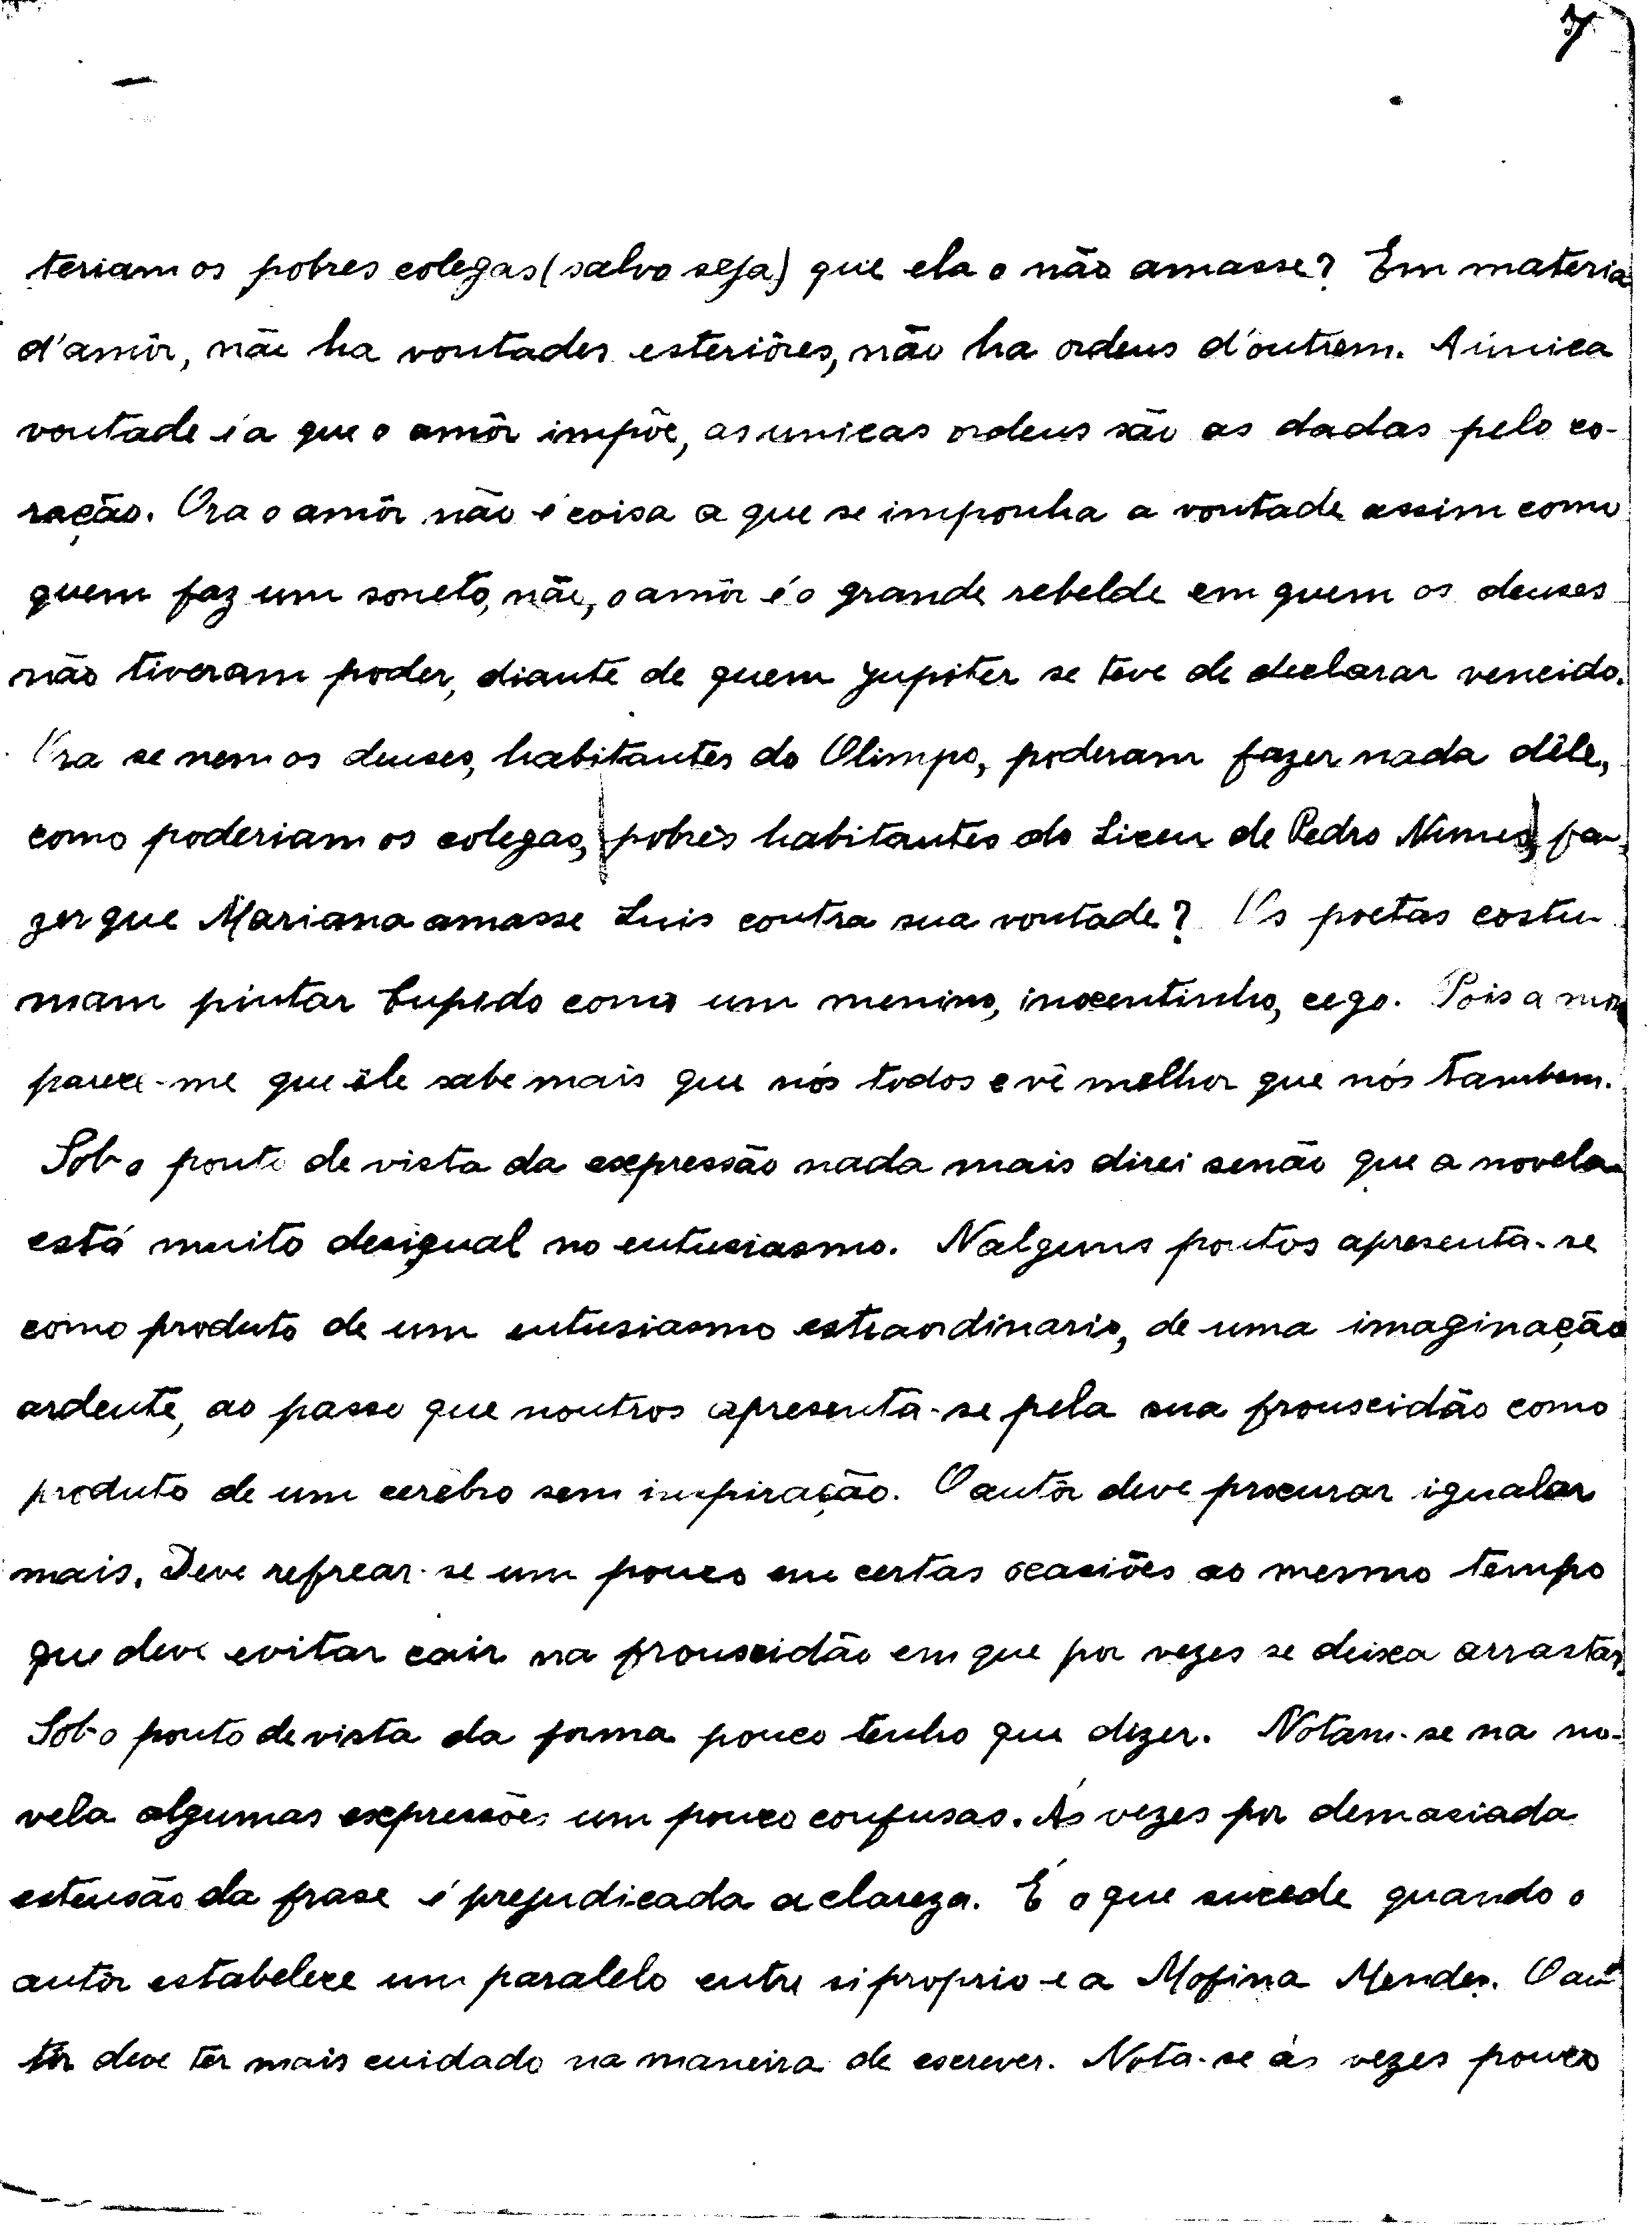 7
teriam os pobres colegas (salvo seja) que ela o não amasse? Em materia
d'amôr, não ha vontades esteriôres, não ha ordens d'outrem. A unica
vontade é a que o amôr impõe, as unicas ordens são as dadas pelo co-
ração. Ora o amôr não é coisa a que se imponha a vontade assim como
quem faz um soneto, não, o amôr é o grande rebelde em quem os deuses
não tiveram poder, diante de quem Jupiter se teve de declarar vencido.
Ora se nem os deuses, habitantes do Olimpo, poderam fazer nada dêle,
como poderiam os colegas, pobres habitantes do Liceu de Pedro Nunes, fa-
zer que Mariana amasse Luis contra sua vontade? Os poetas costu-
mam pintar Cupido como um menino, inocentinho, cego. Pois a mim
parece-me que êle sabe mais que nós todos e vê melhor que nós tambem.
Sob o ponto de vista da expressão nada mais direi senão que a novela
está muito desigual no entusiasmo. Nalguns pontos apresenta-se
como produto de um entusiasmo estraordinario, de uma imaginação
ardente, ao passo que noutros apresenta-se pela sua frouxidão como
produto de um cerebro sem inspiração. O autôr deve procurar igualar
mais. Deve refrear-se um pouco em certas ocasiões ao mesmo tempo
que deve evitar cair na frouxidão em que por vezes se deixa arrastar.
Sob o ponto de vista da forma pouco tenho que dizer. Notam-se na no-
vela algumas expressões um pouco confusas. Ás vezes por demasiada
estensão da frase é prejudicada a clareza. É o que sucede quando o
autôr estabelece um paralelo entre si proprio e a Mofina Mendes. O au-
tôr deve ter mais cuidado na maneira de escrever. Nota-se ás vezes pouco